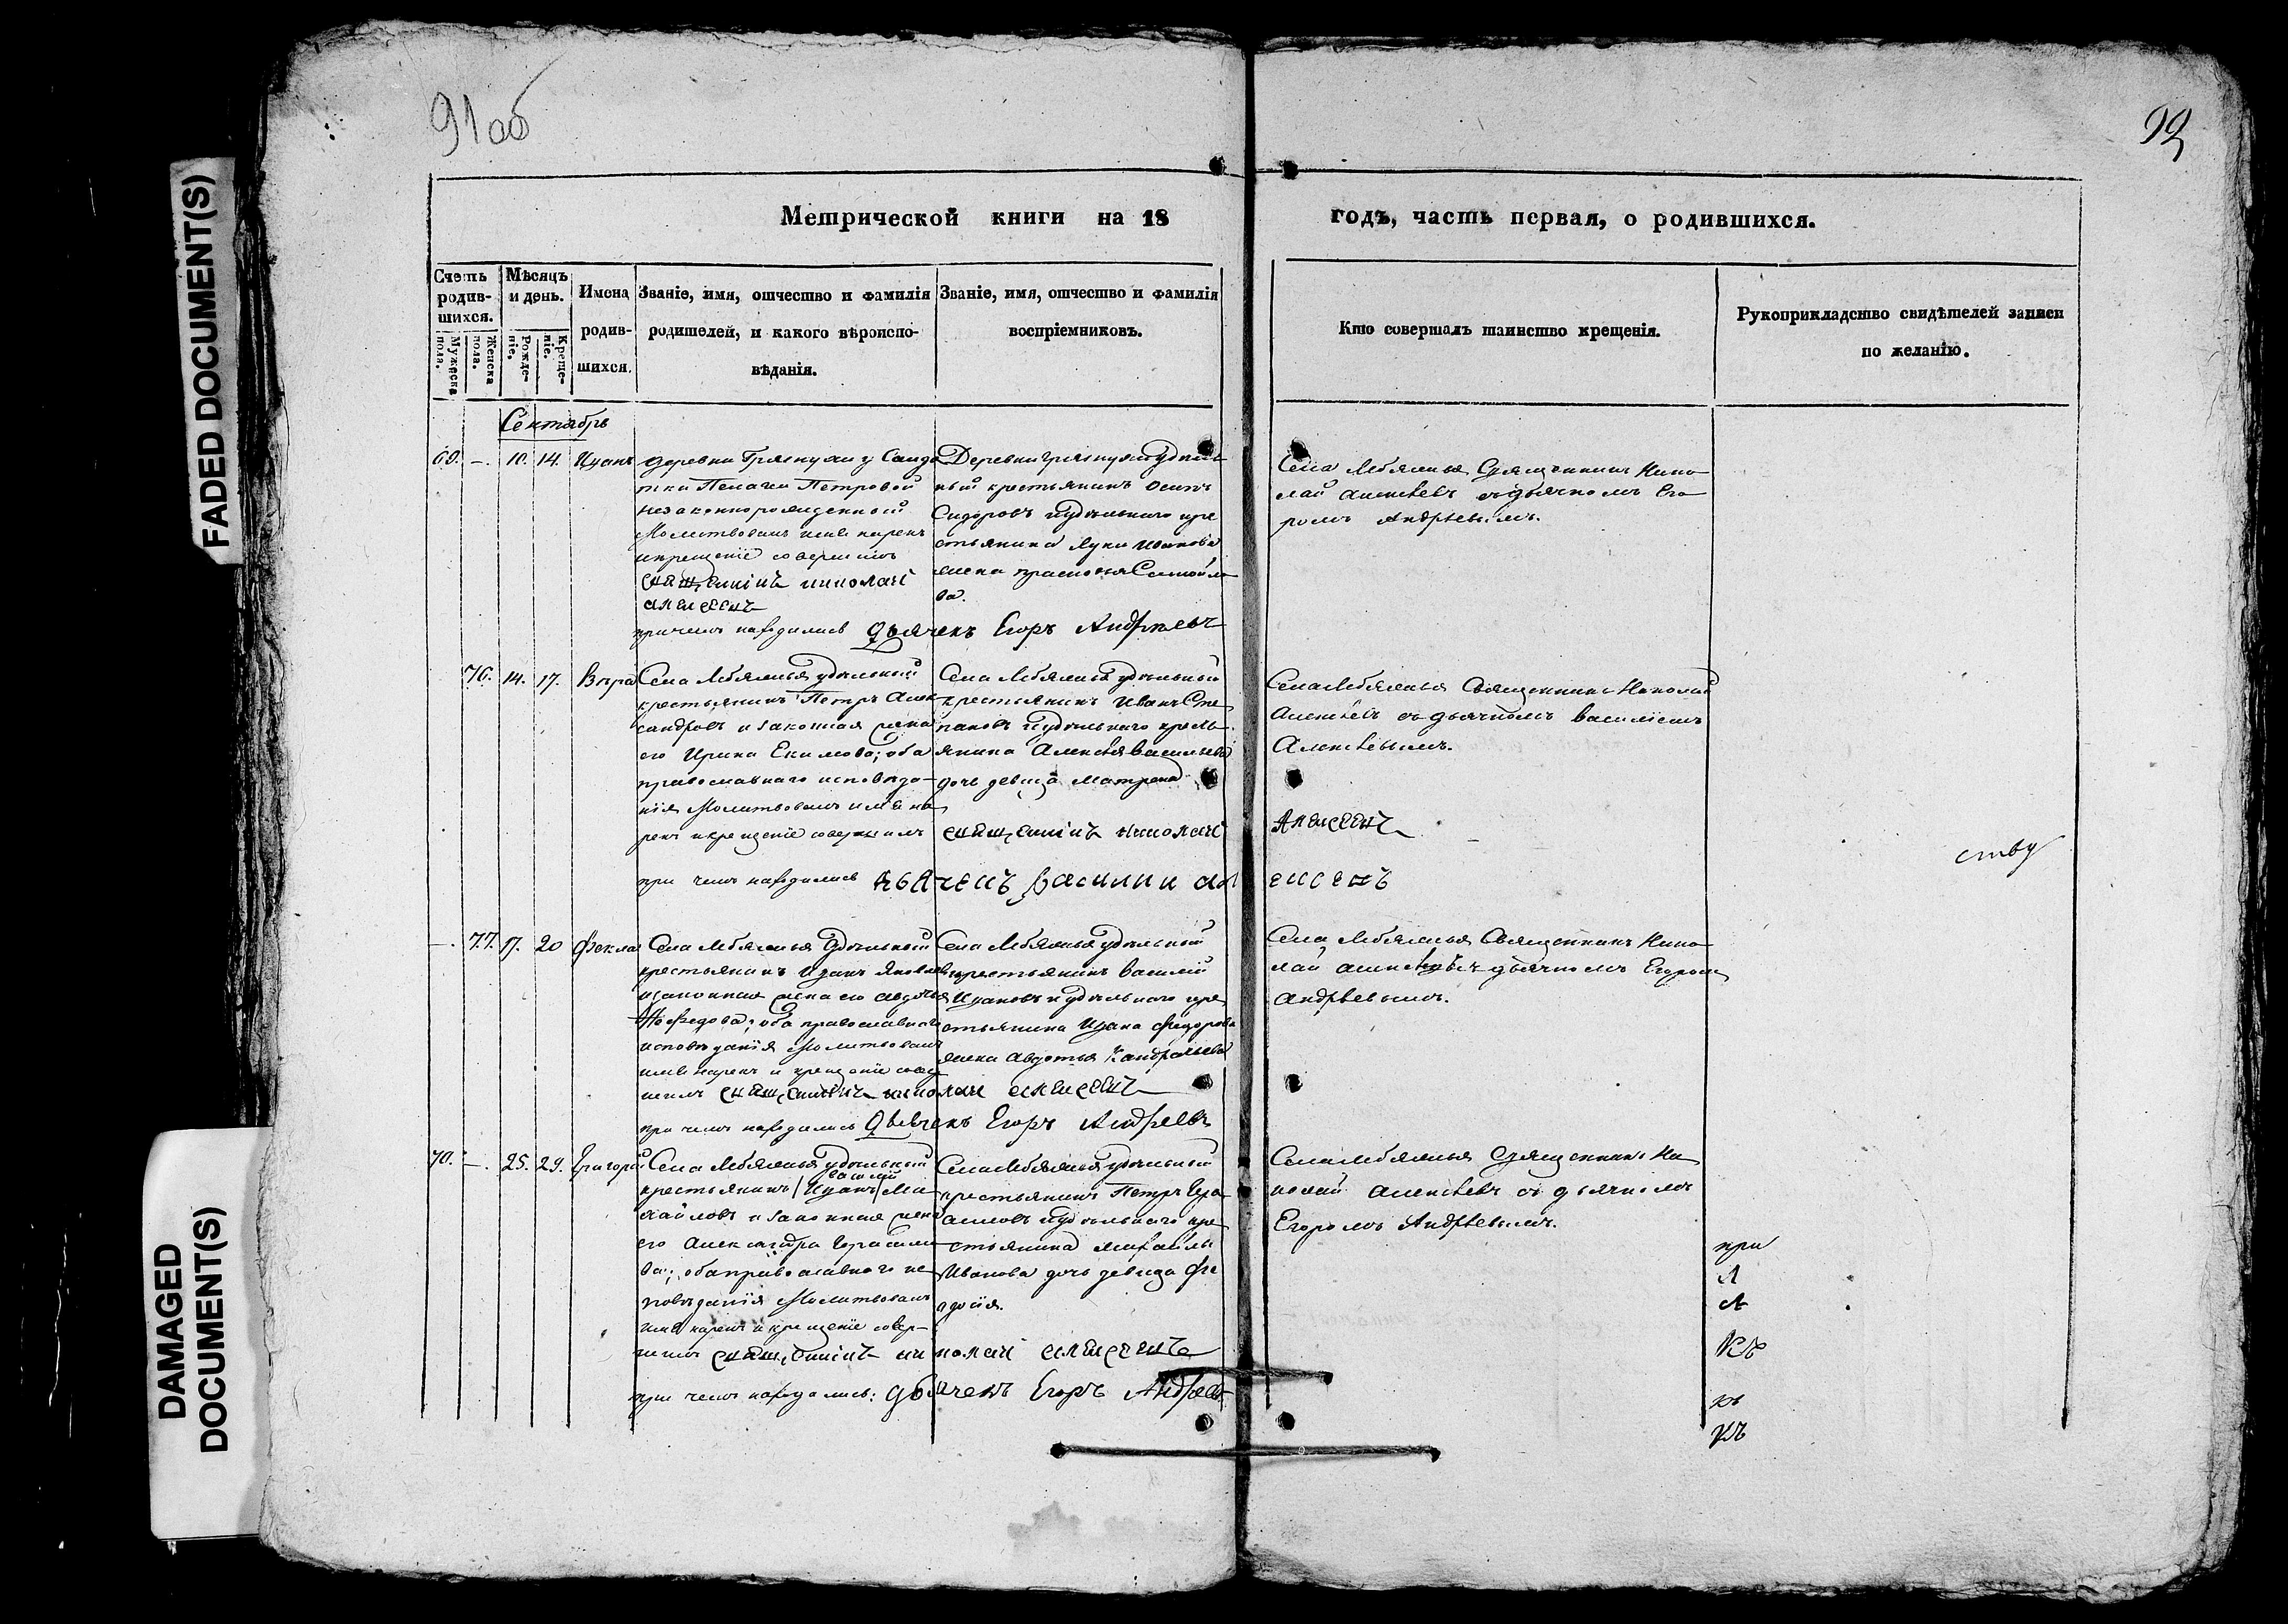 FADED DOCUMENT(S)
DAMAGED
DOCUMENT(S)
91об
92
Метрической книги на 18
годъ, часть первая, о родившихся.
Счетъ
родив-
шихся.
Мужеска
пола.
Женска
пола.
Мѣсяцъ
и день.
Рожде-
ніе.
Креще-
ніе.
Имена
родив-
шихся.
Званіе, имя, отчество и фамилія
родителей, и какого вѣроиспо-
вѣданія.
Званіе, имя, отчество и фамилія
воспріемниковъ.
Кто совершалъ таинство крещенія.
Рукоприкладство свидѣтелей записи
по желанію.
Сентябрь
69. —. 10. 14. Иванъ
деревни у Салда
тки Пелагеи Петровой
незаконнорожденной
Молитвовалъ имя нарекъ
и крещеніе совершилъ
священникъ николай
алексеевъ
при чемъ находились дьячекъ Егоръ Андреевъ
Деревни удѣль
ный крестьянинъ Осипъ
Сидоровъ и удѣльнаго кре
стьянина Луки Иванова
жена
ва.
Села Лебяжья Священникъ Нико
лай Алексѣевъ съ дьячкомъ Его
ромъ Андрѣевымъ.
76. 14. 17. Вѣра
Села Лебяжья удѣльный
крестьянинъ Петръ Алек
сандровъ и законная жена
его Ирина Екимова; оба
православнаго исповѣда-
нія Молитвовалъ имя на
рекъ и крещеніе совершилъ
священникъ николай
Алексеевъ
при чемъ находились дьячекъ василии ал
ексеевъ
Села Лебяжья удѣльный
крестьянинъ Иванъ Сте
пановъ и удѣльнаго кресть
янина Алексѣя Васильева
дочь девица Матрена
Села Лебяжья Священникъ Николай
Алексѣевъ съ дьячкомъ Василіемъ
Алексѣевымъ.
ству
—. 77. 17. 20 Фекла
Села Лебяжья Удѣльный
крестьянинъ Иванъ Яковлевъ
и законная жена его Авдотья
оба православнаго
исповѣданія Молитвовалъ
имя нарекъ и крещеніе совер
шилъ священникъ николай алексеевъ
при чемъ находились Дьячекъ Егоръ Андреевъ
Села Лебяжья удѣльный
крестьянинъ Василій
Ивановъ и удѣльнаго кре
стьянина Ивана Федорова
жена Авдотья Кандратьева
Села Лебяжья Священникъ Нико
лай Алексѣевъ съ дьячкомъ Егоромъ
Андрѣевымъ.
70. —. 25. 29. Григорій
Села Лебяжья удѣльный
василій
крестьянинъ /Иванъ/ Ми
хайловъ и законная жена
его Александра Герасимо
ва; оба православнаго ис
повѣданія Молитвовалъ
имя нарекъ и крещеніе совер-
шилъ священникъ николай алексеевъ
при чемъ находились: дьячекъ Егоръ Андреевъ
Села Лебяжья удѣльный
крестьянинъ Петръ Гера
симовъ и удѣльнаго кре
стьянина Михайлы
Иванова дочь девица Фе
досія.
Села Лебяжья Священникъ Ни
колай Алексѣевъ съ дьячкомъ
Егоромъ Андрѣевымъ.
при